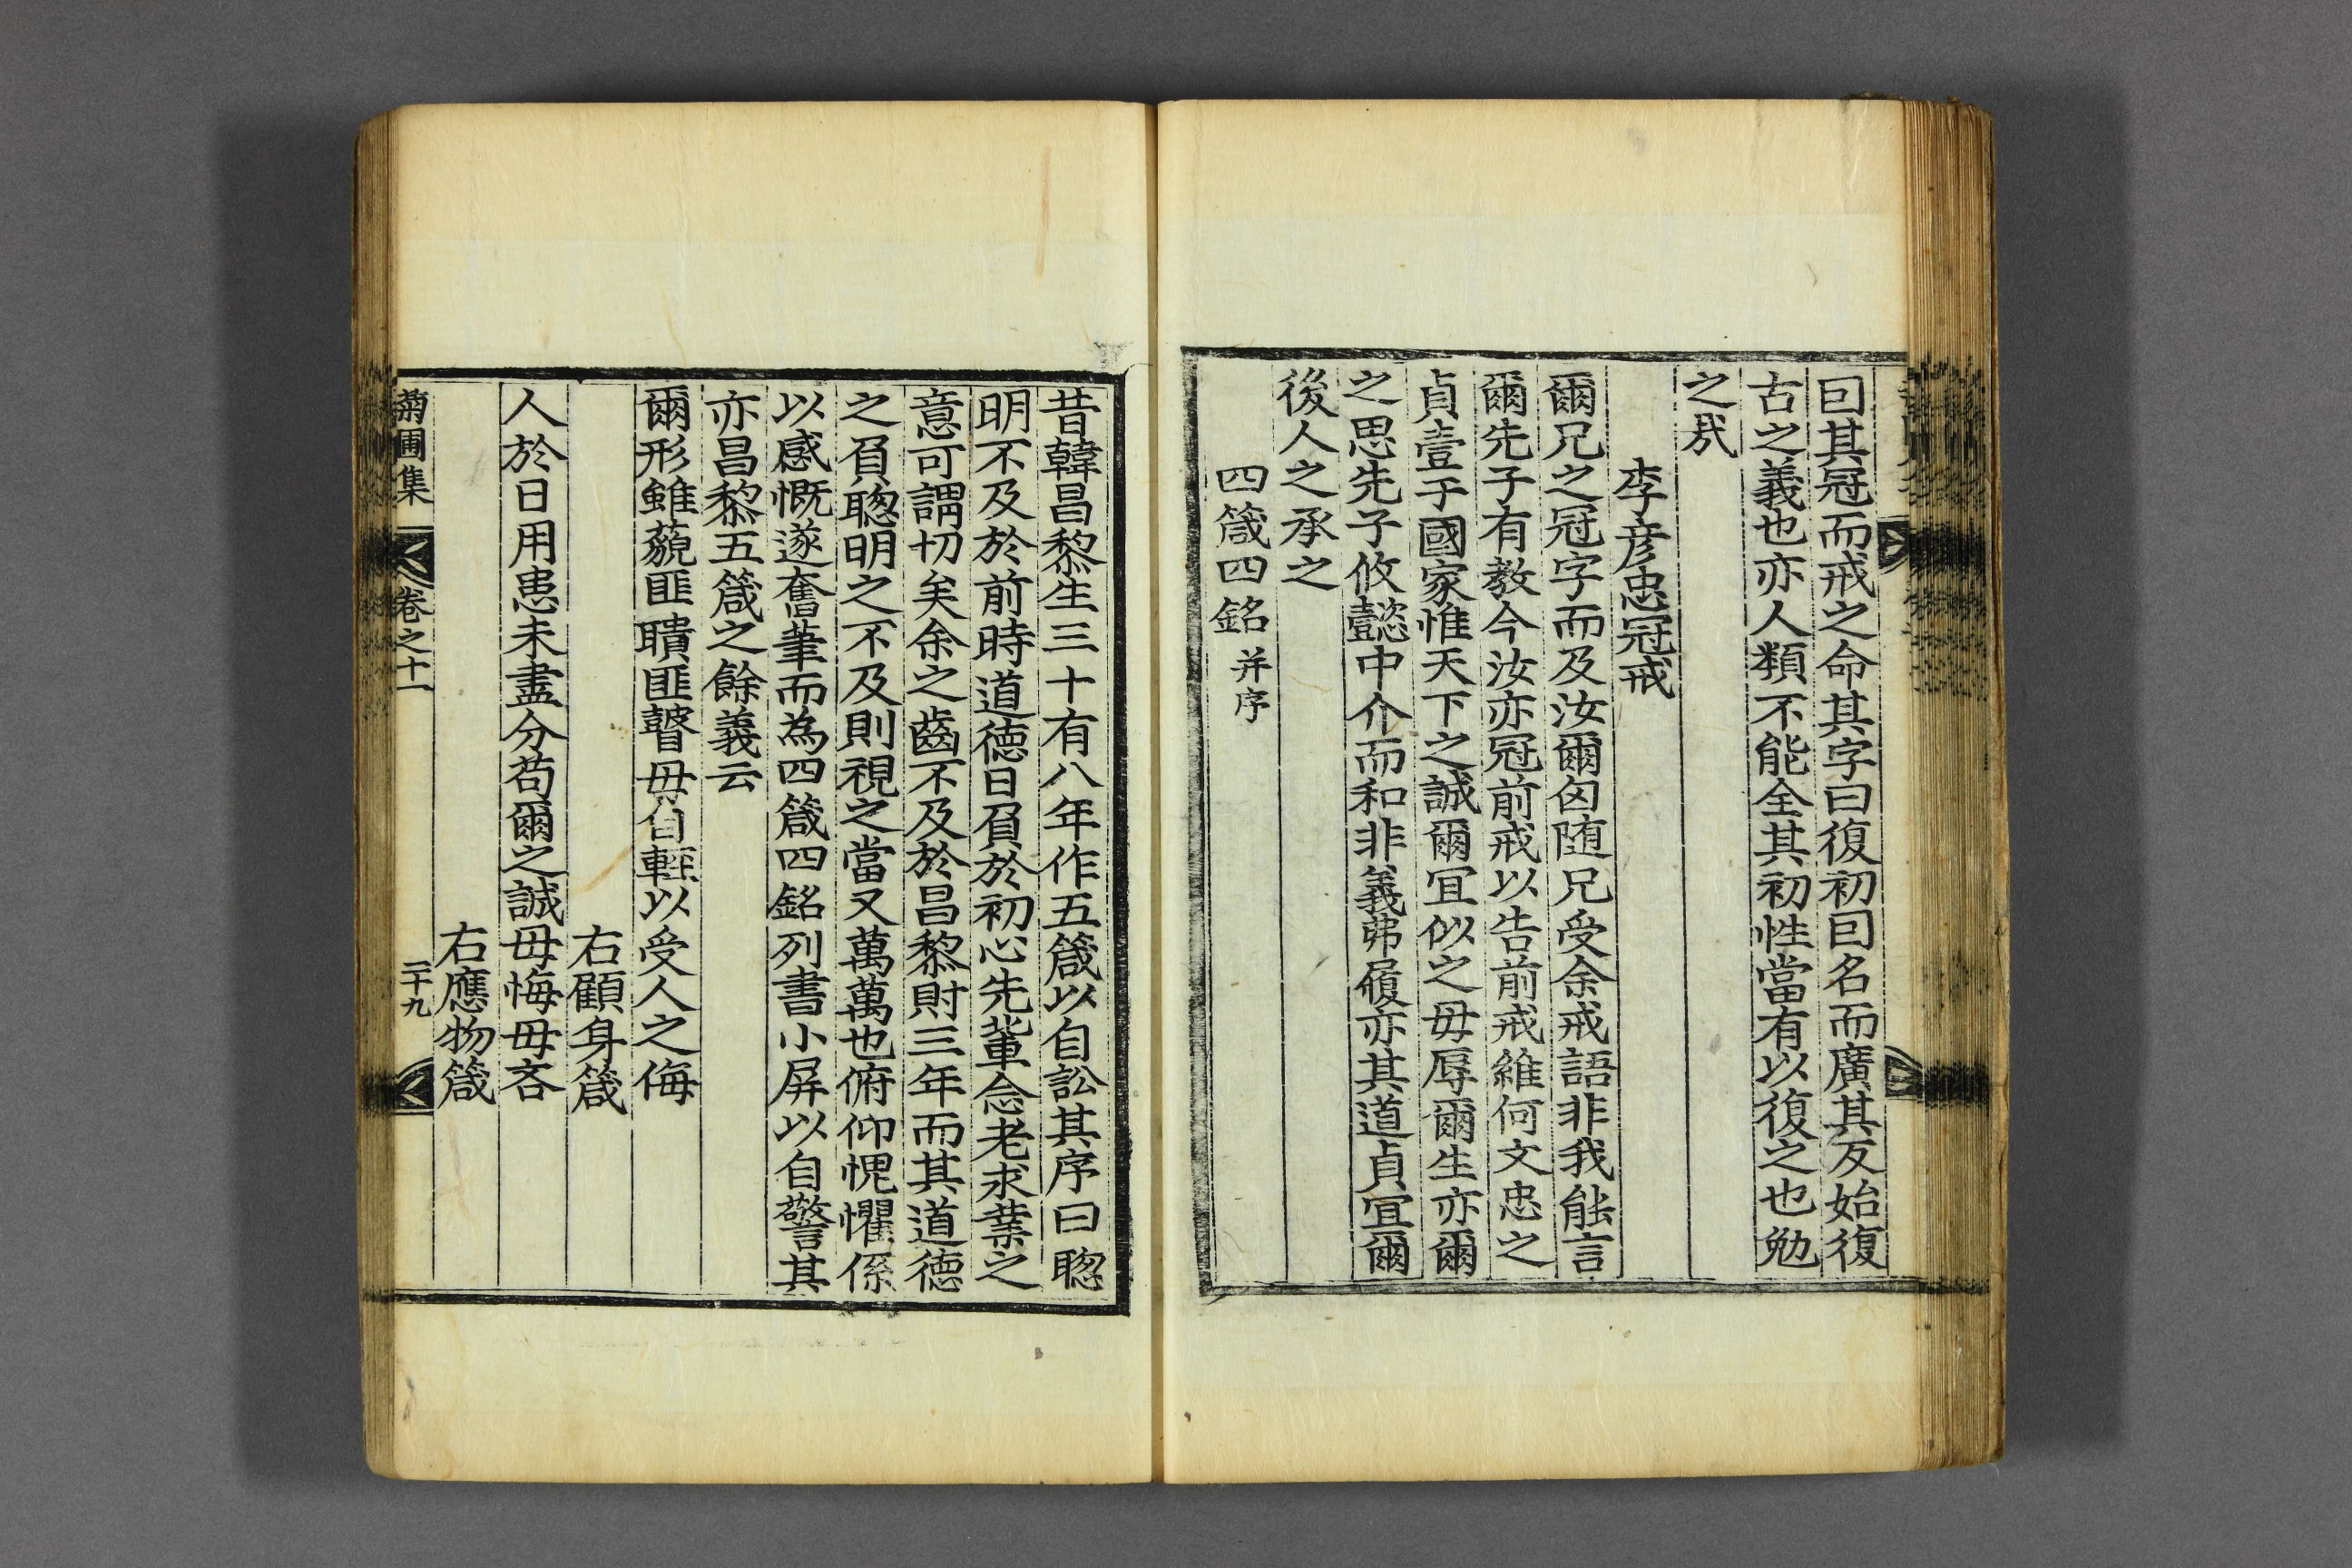 囙其冠而戒之命其字曰復初囙名而廣其反始復
古之義也亦人類不能全其初性當有以復之也勉
之㢤
李彦忠冠戒
爾兄之冠字而及汝爾囟随兄受余戒語非我能言
爾先子有教今汝亦冠前戒以告前戒維何文忠之
貞壹于國家惟天下之誠爾冝似之毋辱爾生亦爾
之思先子攸懿中介而和非義弗履亦其道貞冝爾
後人之承之
四箴四銘 并序
昔韓昌黎生三十有八年作五箴以自訟其序曰聦
明不及於前時道德日負於初心先軰念老求業之
意可謂切矣余之齒不及於昌黎財三年而其道德
之負聦明之不及則視之當又萬萬也俯仰愧懼係
以感慨遂奮筆而為四箴四銘列書小屏以自警其
亦昌黎五箴之餘義云
爾形雖藐匪聵匪瞽毋自輕以受人之侮
右顧身箴
人於日用患未盡分苟爾之誠毋悔毋吝
右應物箴
菊圃集 卷之十一 二十九